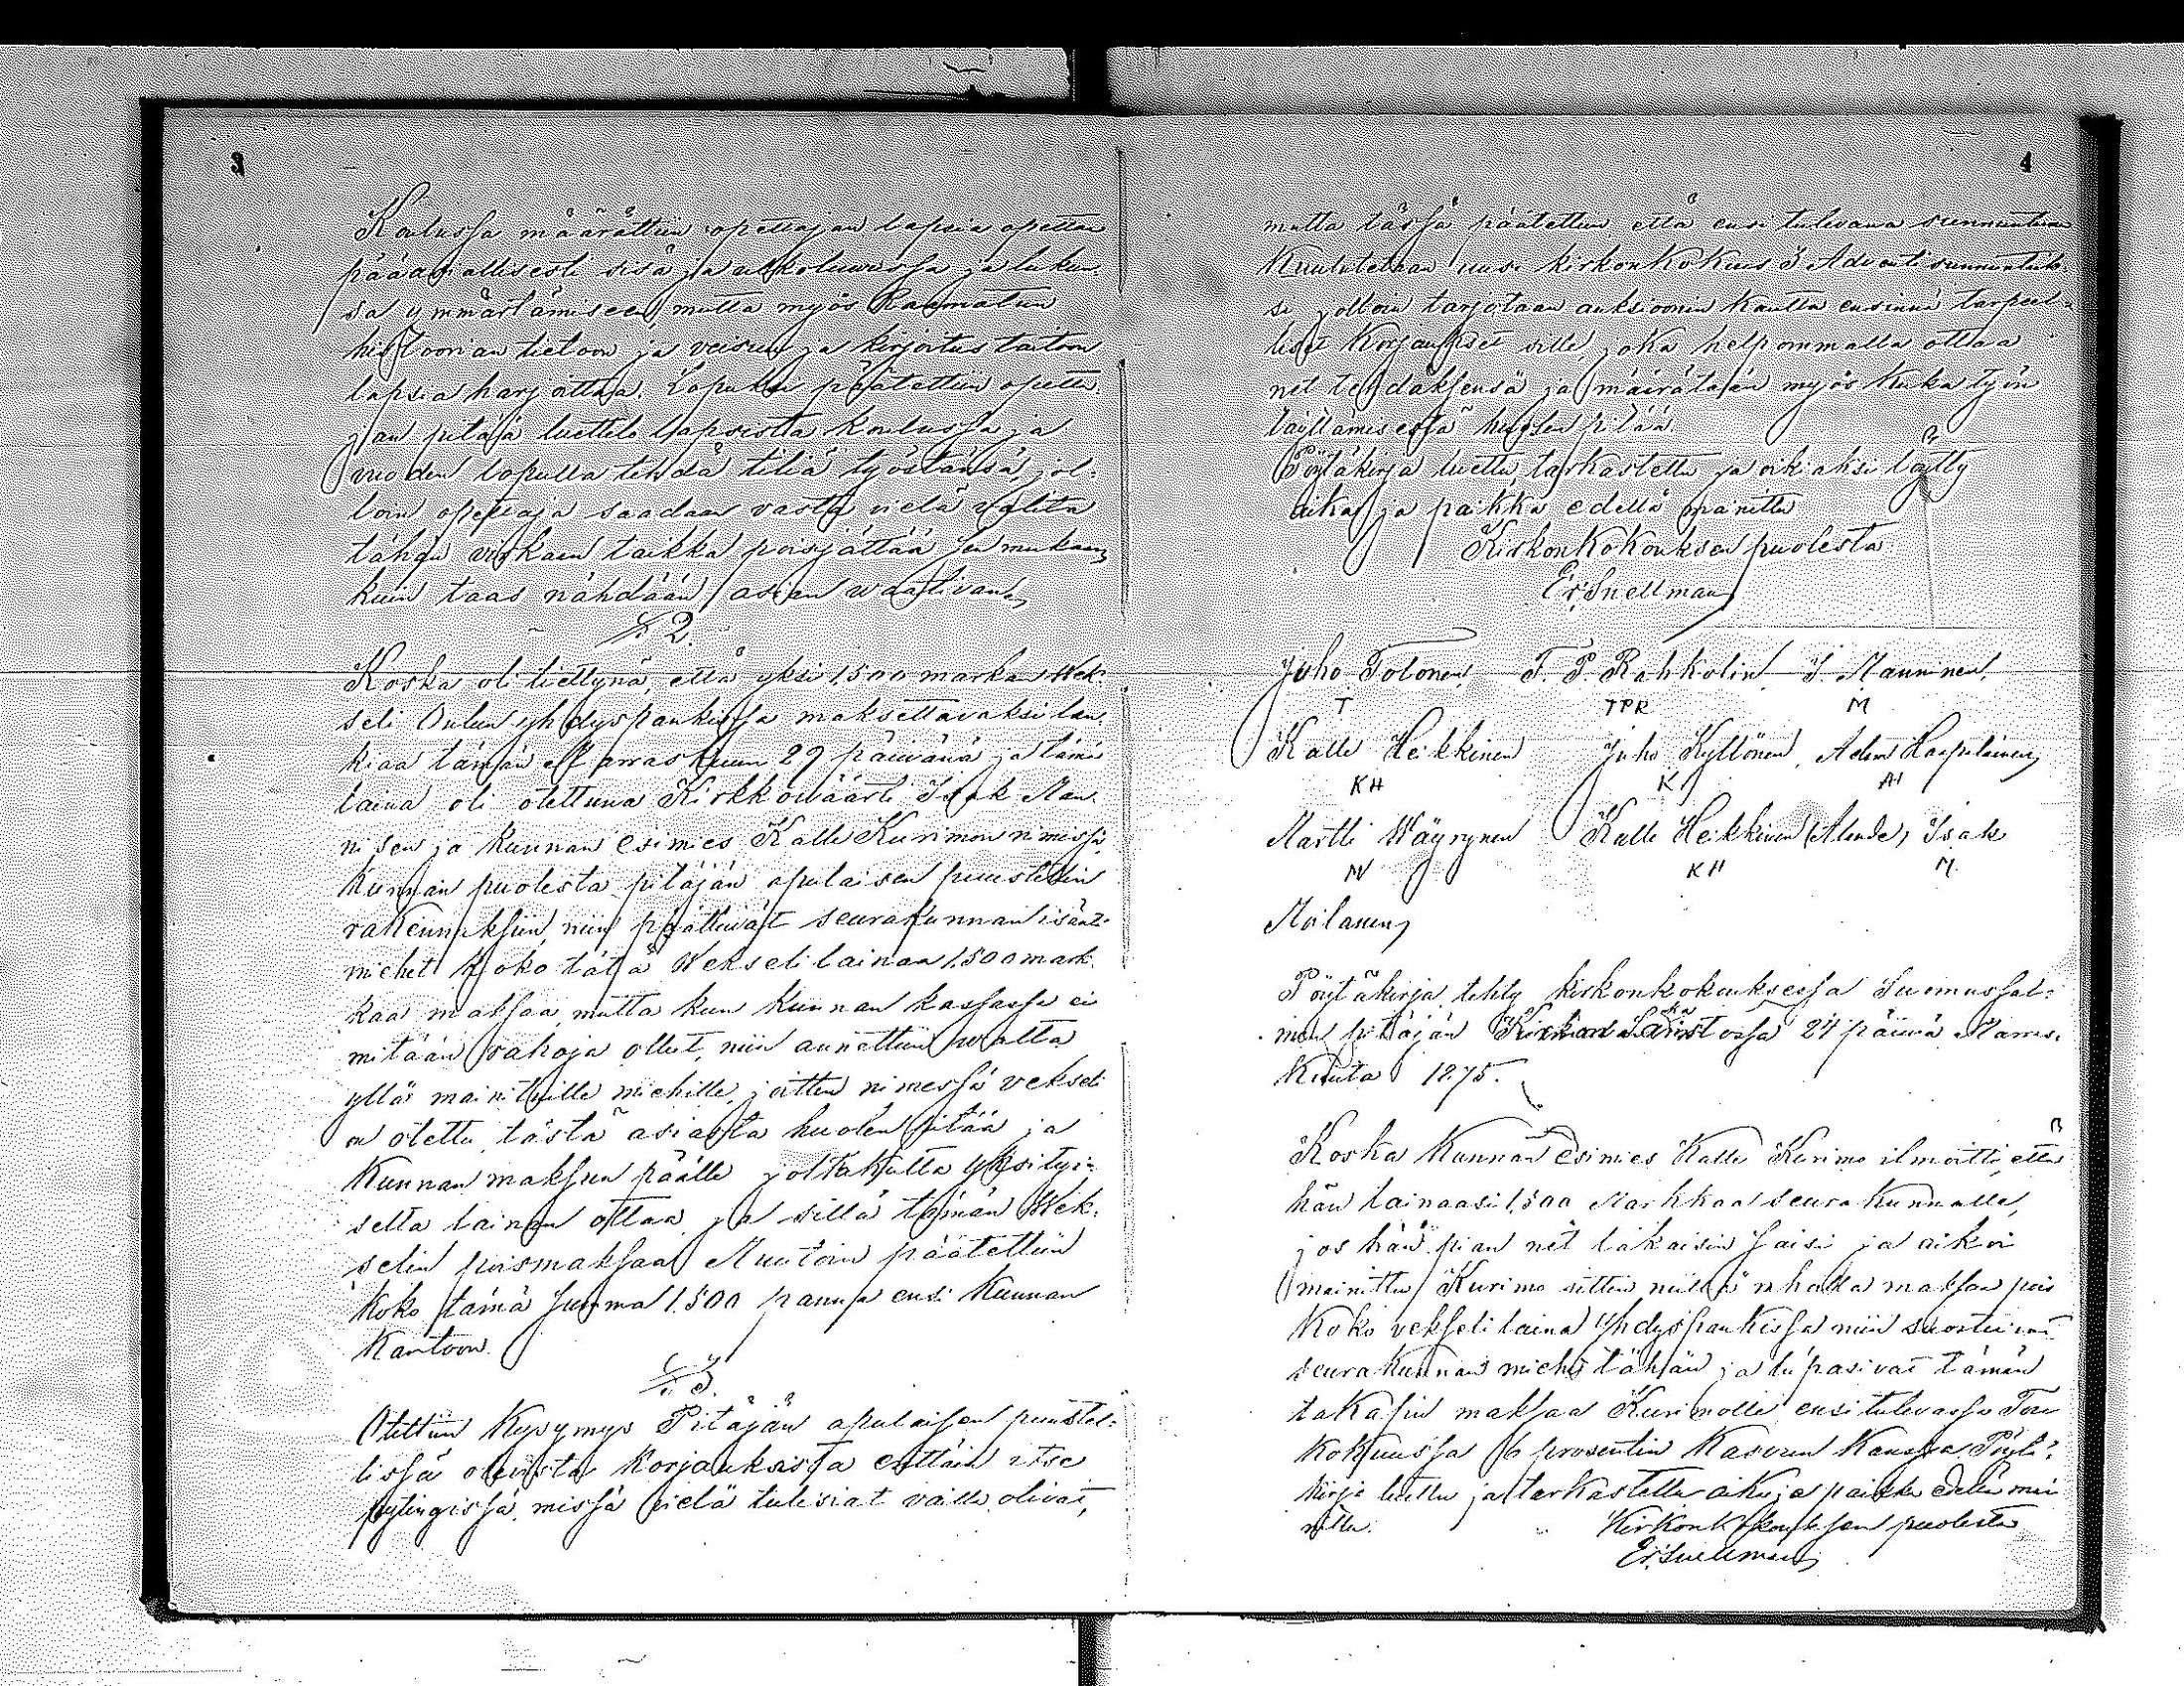 3
Koulussa määrättiin opettajan lapsia opettaa
pääasiallisesti sisä ja ulkoluvussa ja lukun-
sa ymmärtämiseen, mutta myös Raamatun
historian tietoon ja veisuu ja kirjoitus taitoon
lapsia harjoittaa. Lopuksi päätettiin opetta-
jan pitää luettelo lapsista koulussa ja
vuoden lopulla tehdä tiliä työstänsä, jol-
loin opettaja saadaan vasta vielä valita
tähän virkaan taikka poisjättää sen mukaan
kuin taas nähdään asian waativan.
§ 2.
Koska oli tiettynä, että yksi 1,500 markan Wek-
seli Oulun yhdyspankissa maksettavaksi lan-
kiaa tämän Marraskuun 29 päiwänä ja tämä
laina oli otettuna Kirkkowäärti Isak Man-
nisen ja kunnan esimies Kalle Kurimon nimessä
kunnan puolesta pitäjän apulaisen puustellin
rakennuksiin, niin päättivät seurakunnan isänt-
miehet koko tätä Wekseli lainaa 1,500 mark-
kaa maksaa mutta kun kunnan kassassa ei
mitään rahoja ollut, niin annettiin walta
yllä mainituille miehille, joitten nimessä vekseli
on otettu, tästä asiasta huolen pitää ja
Kunnan maksun päälle joltakulta yksityi-
seltä lainan ottaa ja sillä tämän Wek-
selin poismaksaa. Muutoin päätettiin
koko tämä summa 1,500 panna ensi Kunnan
Kantoon.
§ 3.
Otettiin Kysymys Pitäjän apulaisen puustel-
lissä olevista korjauksista erittäin itse
pytingissä, missä vielä tulisiat vailla olivat,
4
mutta tässä päätettiin että ensi tulevana sunnuntaina
Kuulutetaan uusi kirkonkokous 3 Advent sunnuntaik-
si jolloin tarjotaan auksioonin kautta ensinnä tarpeel-
liset Korjaukset sille, joka helpommalla ottaa
net tehdäksensä ja määrätään myös kuka työn
täyttämisestä huolen pitää.
Pöytäkirja luettu, tarkastettu ja oikiaksi löytty
aika ja paikka edellä mainittu
Kirkonkokouksen puolesta
Er. Snellman
Juho Tolonen T. P. Rahkolin I. Manninen
T TPR M
Kalle Heikkinen Juho Kyllönen, Adam Haapalainen,
KH K AH
Martti Wäyrynen Kalle Heikkinen (Alande), Isak
MW KH M.
Moilanen,
Pöytäkirja tehty kirkonkokouksessa Suomussal-
men pitäjän 24 päivä Marras-
kuuta 1875.
Koska Kunnan Esimies Kalle Kurimo ilmoitti, että
hän lainaasi 1,500 Markkaa seurakunnalle,
jos hän pian net takaisin saisi ja aikoi
mainittu Kurimo sitten niillä rahalla maksaa pois
Koko vekseli laina Yhdyspankissa niin suostuivat
seurakunnan miehet tähän ja lupasivat tämän
takasin maksaa Kurimolle ensitulevassa
kokuussa 6 prosentin Kasvun Kanssa. Pöytä-
kirja luettu ja tarkastettu aika ja paikka edellä mai-
nittu. Kirkonkokouksen puolesta
Er. Snellman,